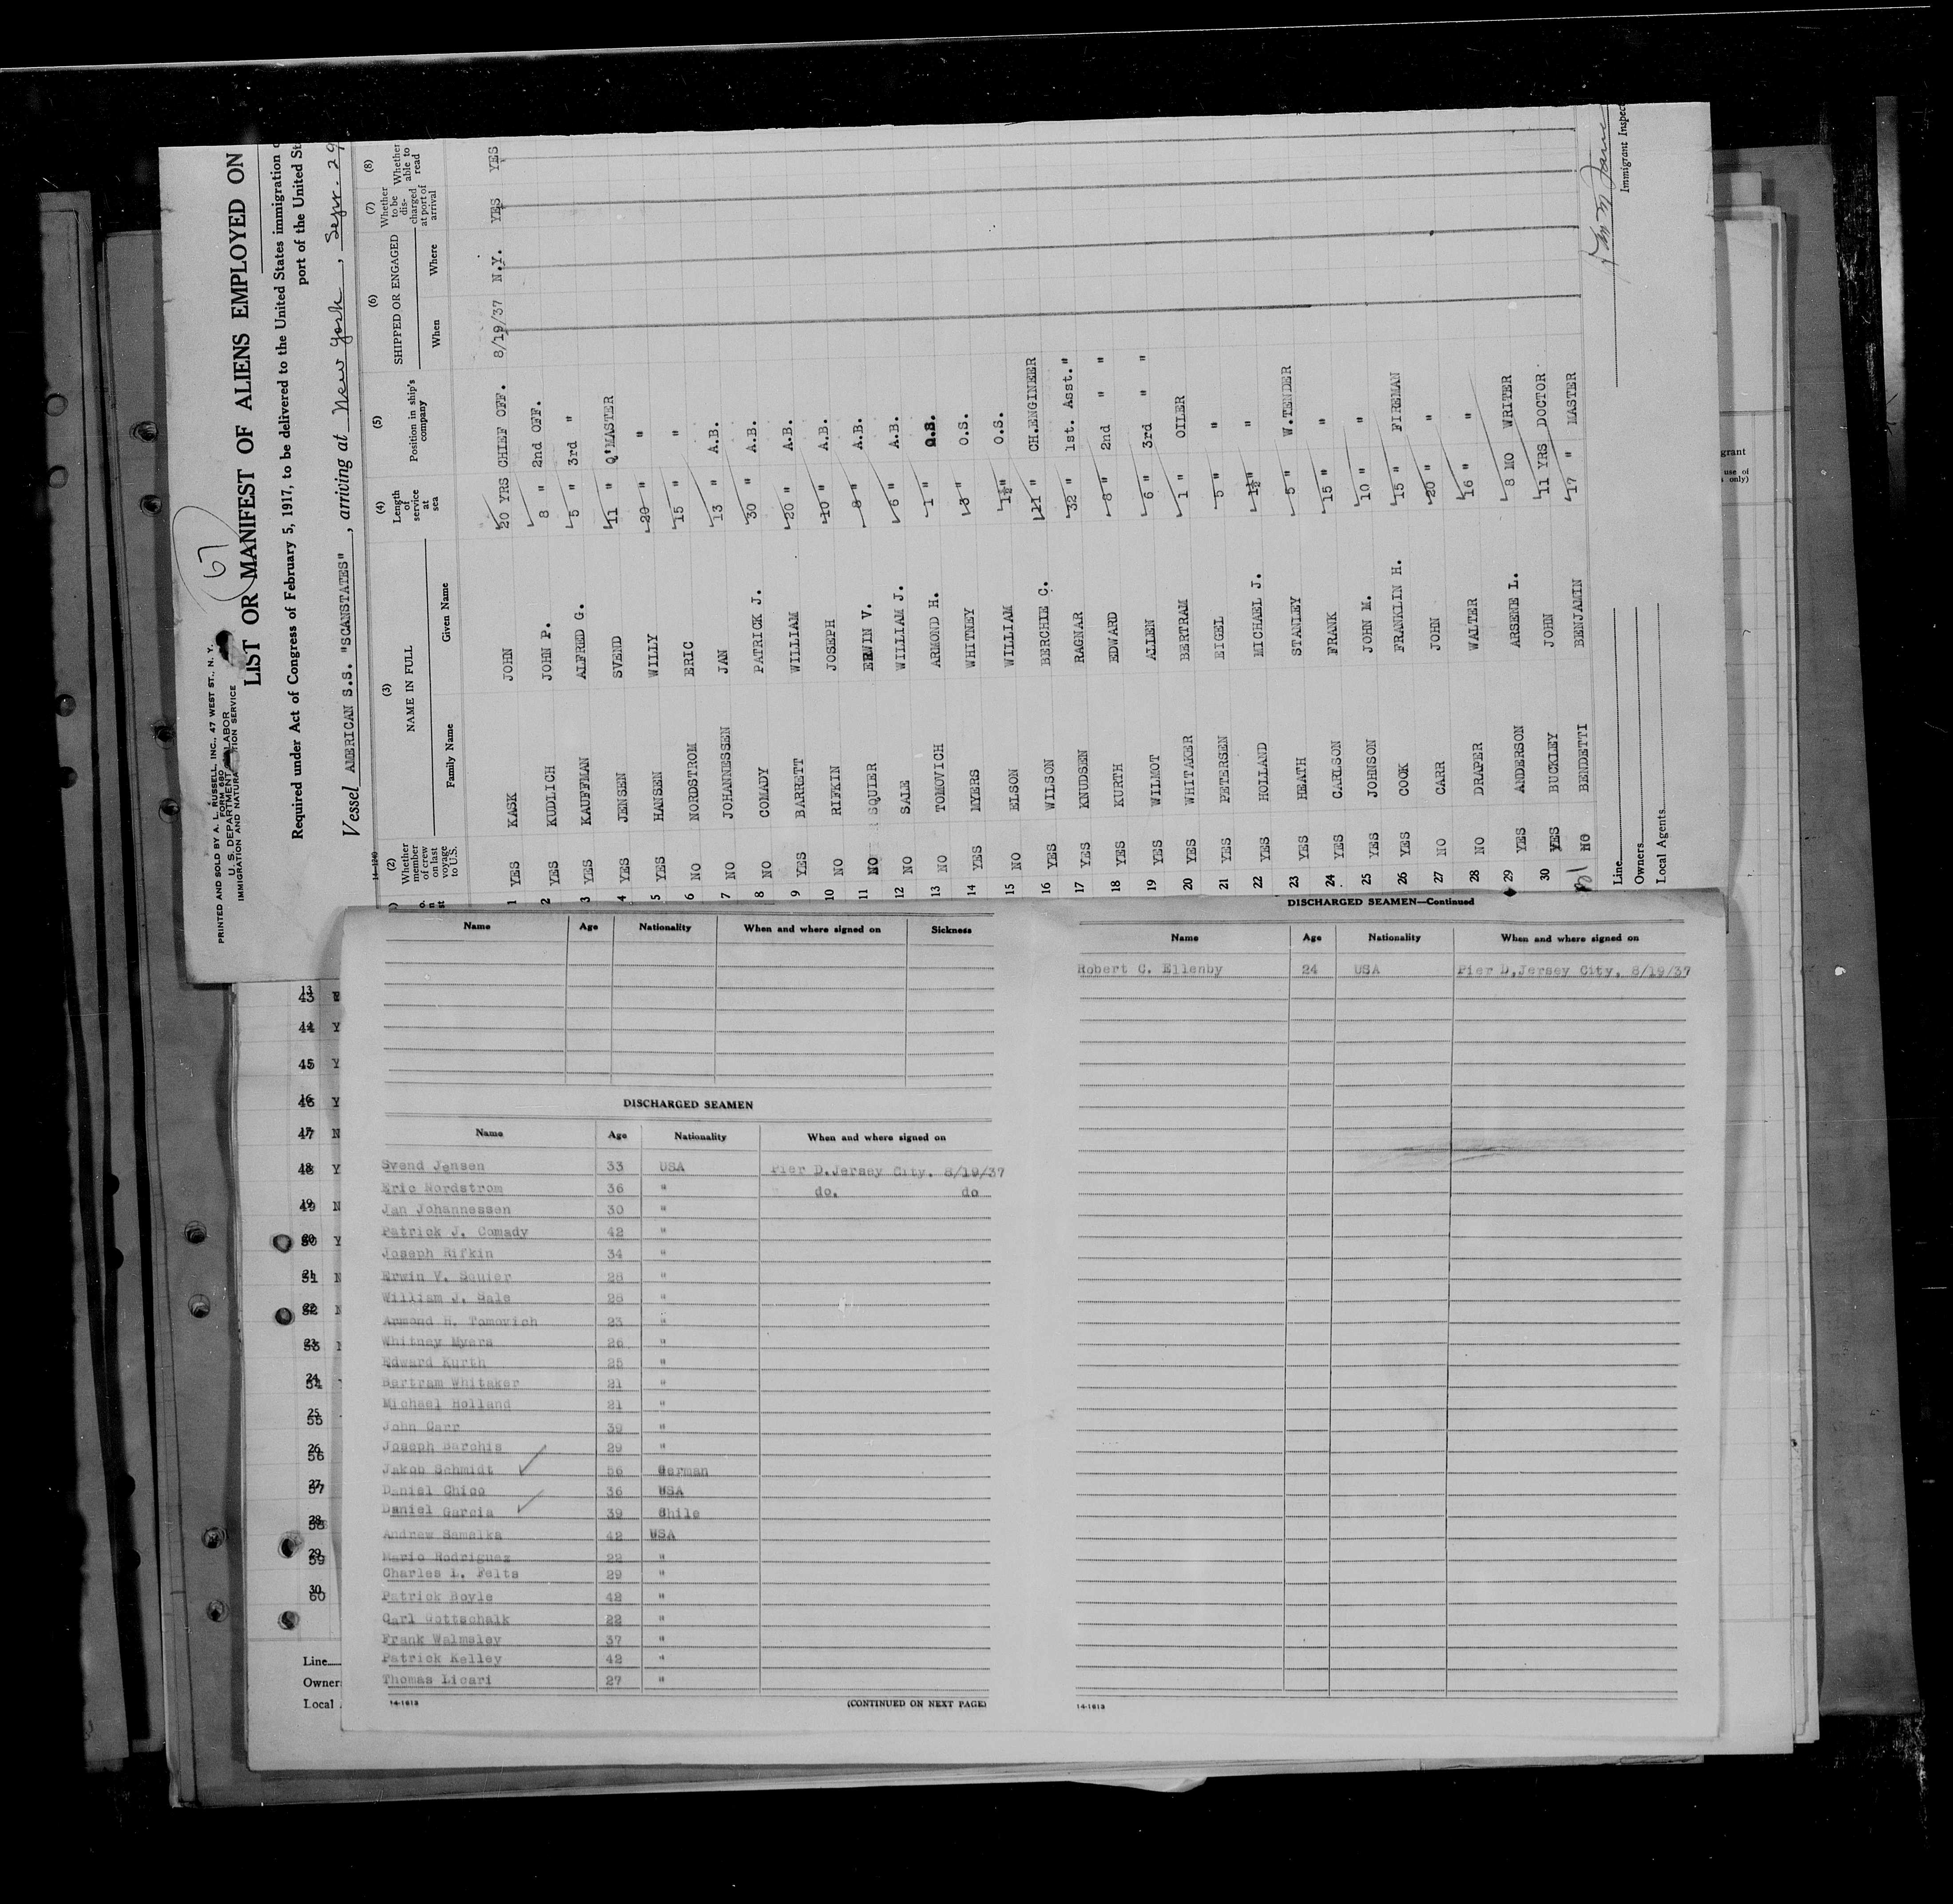 67
PRINTED AND SOLD BY A. L. RUSSELL, INC., 47 WEST ST., N. Y.
FORM 680
U. S. DEPARTMENT LABOR
IMMIGRATION AND NATURA TION SERVICE
LIST OR MANIFEST OF ALIENS EMPLOYED ON
Required under Act of Congress of February 5, 1917, to be delivered to the United States immigration
port of the United St
Vessel AMERICAN S.S. "SCANSTATES", arriving at New York, Sept. 29
14-1240
(2) Whether member of crew on last voyage to U.S. (3) NAME IN FULL Family Name Given Name (4) Length of service at sea (5) Position in ship's company (6) SHIPPED OR ENGAGED When Where (7) Whether to be discharged at port of arrival (8) Whether able to read
1 YES KASK JOHN 20 YRS CHIEF OFF. 8/19/37 N.Y. YES YES
2 YES KUDLICH JOHN P. 8 " 2nd OFF.
3 YES KAUFFMAN ALFRED G. 5 " 3rd "
4 YES JENSEN SVEND 11 " Q'MASTER
5 YES HANSEN WILLY 20 " "
6 NO NORDSTROM ERIC 15 " "
7 NO JOHANNESSEN JAN 13 " A.B.
8 NO COMADY PATRICK J. 30 " A.B.
9 YES BARRETT WILLIAM 20 " A.B.
10 NO RIFKIN JOSEPH 10 " A.B.
11 NO SQUIER ERWIN V. 8 " A.B.
12 NO SALE WILLIAM J. 6 " A.B.
13 NO TOMOVICH ARMOND H. 1 " O.S.
14 YES MYERS WHITNEY 3 " O.S.
15 NO ELSON WILLIAM 1½" O.S.
16 YES WILSON BERCHIE C. 21 " CH.ENGINEER
17 YES KNUDSEN RAGNAR 32 " 1st. Asst."
18 YES KURTH EDWARD 8 " 2nd " "
19 YES WILMOT ALLEN 6 " 3rd " "
20 YES WHITAKER BERTRAM 1 " OILER
21 YES PETERSEN EIGEL 5 " "
22 YES HOLLAND MICHAEL J. 1½" "
23 YES HEATH STANLEY 5 " W.TENDER
24 YES CARLSON FRANK 15 " "
25 YES JOHNSON JOHN M. 10 " "
26 YES COOK FRANKLIN H. 15 " FIREMAN
27 NO CARR JOHN 20 " "
28 NO DRAPER WALTER 16 " "
29 YES ANDERSON ARSENE L. 8 MO WRITER
30 YES BUCKLEY JOHN 11 YRS DOCTOR
NO BENDETTI BENJAMIN 17 " MASTER
Line
Owners
Local Agents
Immigrant Inspec
grant
use of
only)
Name Age Nationality When and where signed on Sickness
DISCHARGED SEAMEN
Name Age Nationality When and where signed on
Svend Jensen 33 USA Pier D.Jersey City. 8/19/37
Eric Nordstrom 36 " do. do
Jan Johannessen 30 "
Patrick J. Comady 42 "
Joseph Rifkin 34 "
Erwin V. Squier 28 "
William J. Sale 28 "
Armond H. Tomovich 23 "
Whitney Myers 26 "
Edward Kurth 25 "
Bertram Whitaker 21 "
Michael Holland 21 "
John Carr 39 "
Joseph Barchis 29 "
Jakob Schmidt 56 German
Daniel Chico 36 USA
Daniel Garcia 39 Chile
Andrew Samelka 42 USA
Mario Rodriguez 22 "
Charles L. Felts 29 "
Patrick Boyle 42 "
Carl Gottschalk 22 "
Frank Walmsley 37 "
Patrick Kelley 42 "
Thomas Licari 27 "
14-1613 (CONTINUED ON NEXT PAGE)
DISCHARGED SEAMEN—Continued
Name Age Nationality When and where signed on
Robert C. Ellenby 24 USA Pier D,Jersey City, 8/19/37
14-1613
13 43
14 44 Y
15 45 Y
16 46 Y
17 47 N
18 48 Y
19 49 N
20 50 Y
21 51 N
22 52 N
23 53
24 54
25 55
26 56
27 57
28 58
29 59
30 60
Line
Owner
Local